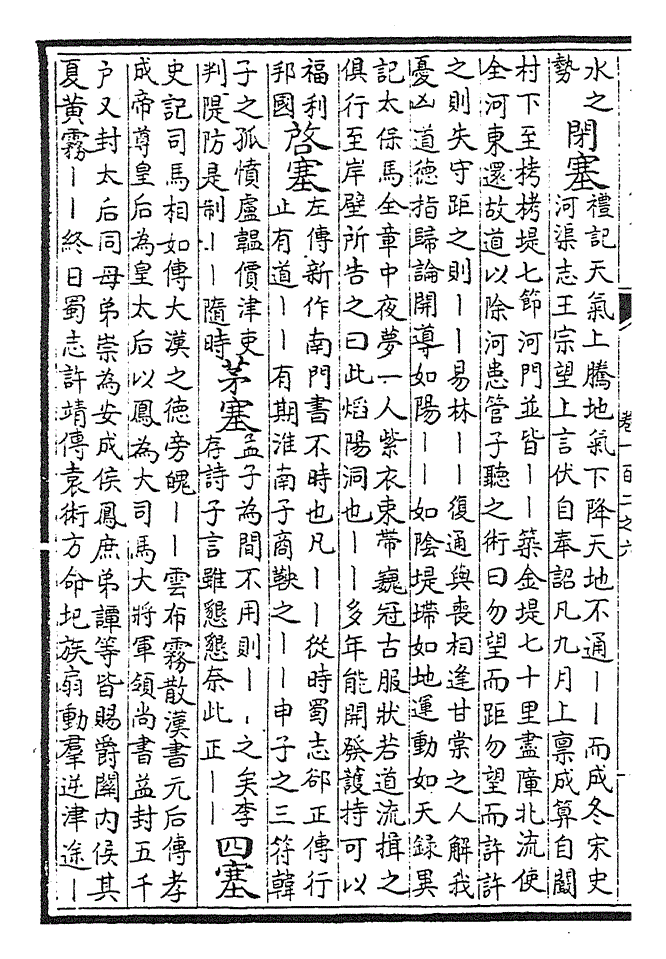 卷一百二之六
水之
勢
閉塞
禮記天氣上騰地氣下降天地不通丨丨而成冬宋史
河渠志王宗望上言伏自奉詔凡九月上稟成算自闞
村下至栲栳堤七節河門並皆丨丨築金堤七十里盡障北流使
全河東還故道以除河患管子聽之術曰勿望而距勿望而許許
之則失守距之則丨丨易林丨丨復通與喪相逢甘棠之人解我
憂凶道德指歸論開導如陽丨丨如陰堤墆如地運動如天録異
記太保馬全章中夜夢一人紫衣束帶巍冠古服狀若道流揖之
俱行至岸壁所告之曰此熖陽洞也丨丨多年能開發護持可以
福利
邦國
啓塞
左傳新作南門書不時也凡丨丨從時蜀志郤正傳行
止有道丨丨有期淮南子商鞅之丨丨申子之三符韓
子之孤憤盧韞價津吏
判隄防是制丨丨隨時
茅塞
孟子為間不用則丨丨之矣李
存詩子言雖懇懇奈此正丨丨
四塞
史記司馬相如傳大漢之徳旁魄丨丨雲布霧散漢書元后傳孝
成帝尊皇后為皇太后以鳳為大司馬大將軍領尚書益封五千
户又封太后同母弟崇為安成侯鳳庶弟譚等皆賜爵關内侯其
夏黄霧丨丨終日蜀志許靖傳袁術方命圮族扇動羣逆津途丨